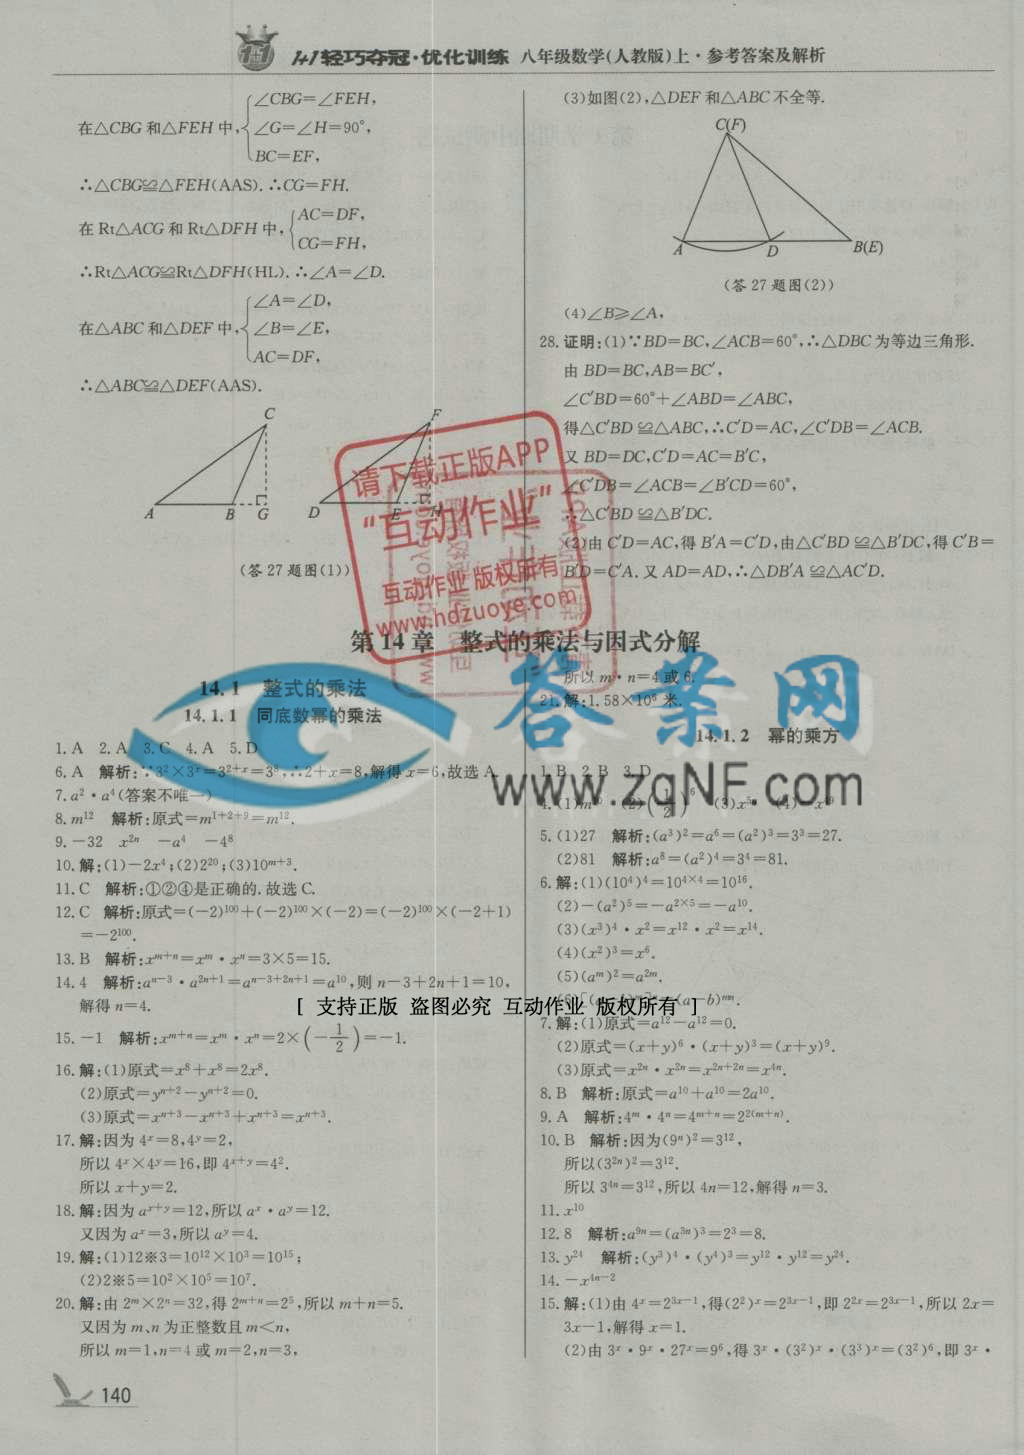 1+1轻巧夺冠·优化训练 八年级数学(人教版)上·参考答案及解析
在△CBG和△FEH中,{∠CBG=∠FEH,
∠G=∠H=90°,
BC=EF,
∴△CBG≌△FEH(AAS).∴CG=FH.
在Rt△ACG和Rt△DFH中,{AC=DF,
CG=FH,
∴Rt△ACG≌Rt△DFH(HL).∴∠A=∠D.
在△ABC和△DEF中,{∠A=∠D,
∠B=∠E,
AC=DF,
∴△ABC≌△DEF(AAS).
C F
A B G D E H
(答27题图(1))
(3)如图(2),△DEF和△ABC不全等.
C(F)
A D B(E)
(答27题图(2))
(4)∠B⩾∠A,
28.证明:(1)∵BD=BC,∠ACB=60°,∴△DBC为等边三角形.
由BD=BC,AB=BC′,
∠C′BD=60°+∠ABD=∠ABC,
得△C′BD≌△ABC,∴C′D=AC,∠C′DB=∠ACB.
又BD=DC,C′D=AC=B′C,
∠C′DB=∠ACB=∠B′CD=60°,
∴△C′BD≌△B′DC.
(2)由C′D=AC,得B′A=C′D,由△C′BD≌△B′DC,得C′B=
B′D=C′A.又AD=AD,∴△DB′A≌△AC′D.
请下载正版APP
“互动作业”
互动作业 版权所有
www.hdzuoye.com
第14章 整式的乘法与因式分解
14.1 整式的乘法
14.1.1 同底数幂的乘法
1.A 2.A 3.C 4.A 5.D
6.A 解析:∵3²×3ˣ=3²⁺ˣ=3⁸,∴2+x=8,解得x=6,故选A.
7.a²·a⁴(答案不唯一)
8.m¹² 解析:原式=m¹⁺²⁺⁹=m¹².
9.-32 x²ⁿ -a⁴ -4⁸
10.解:(1)-2x⁴;(2)2²⁰;(3)10ᵐ⁺³.
11.C 解析:①②④是正确的.故选C.
12.C 解析:原式=(-2)¹⁰⁰+(-2)¹⁰⁰×(-2)=(-2)¹⁰⁰×(-2+1)
=-2¹⁰⁰.
13.B 解析:xᵐ⁺ⁿ=xᵐ·xⁿ=3×5=15.
14.4 解析:aⁿ⁻³·a²ⁿ⁺¹=aⁿ⁻³⁺²ⁿ⁺¹=a¹⁰,则n-3+2n+1=10,
解得n=4.
15.-1 解析:xᵐ⁺ⁿ=xᵐ·xⁿ=2×(-1/2)=-1.
16.解:(1)原式=x⁸+x⁸=2x⁸.
(2)原式=yⁿ⁺²-yⁿ⁺²=0.
(3)原式=xⁿ⁺³-xⁿ⁺³+xⁿ⁺³=xⁿ⁺³.
17.解:因为4ˣ=8,4ʸ=2,
所以4ˣ×4ʸ=16,即4ˣ⁺ʸ=4².
所以x+y=2.
18.解:因为aˣ⁺ʸ=12,所以aˣ·aʸ=12.
又因为aˣ=3,所以aʸ=4.
19.解:(1)12※3=10¹²×10³=10¹⁵;
(2)2※5=10²×10⁵=10⁷.
20.解:由2ᵐ×2ⁿ=32,得2ᵐ⁺ⁿ=2⁵,所以m+n=5.
又因为m、n为正整数且m<n,
所以m=1,n=4或m=2,n=3,
所以m·n=4或6.
21.解:1.58×10⁶米.
14.1.2 幂的乘方
1.B 2.B 3.D
5.(1)27 解析:(a³)²=a⁶=(a²)³=3³=27.
(2)81 解析:a⁸=(a²)⁴=3⁴=81.
6.解:(1)(10⁴)⁴=10⁴ˣ⁴=10¹⁶.
(2)-(a²)⁵=-a²ˣ⁵=-a¹⁰.
(3)(x³)⁴·x²=x¹²·x²=x¹⁴.
(4)(x²)³=x⁶.
(5)(aᵐ)²=a²ᵐ.
7.解:(1)原式=a¹²-a¹²=0.
(2)原式=(x+y)⁶·(x+y)³=(x+y)⁹.
(3)原式=x²ⁿ·x²ⁿ=x²ⁿ⁺²ⁿ=x⁴ⁿ.
8.B 解析:原式=a¹⁰+a¹⁰=2a¹⁰.
9.A 解析:4ᵐ·4ⁿ=4ᵐ⁺ⁿ=2²⁽ᵐ⁺ⁿ⁾.
10.B 解析:因为(9ⁿ)²=3¹²,
所以(3²ⁿ)²=3¹².
所以3⁴ⁿ=3¹²,所以4n=12,解得n=3.
11.x¹⁰
12.8 解析:a⁹ⁿ=(a³ⁿ)³=2³=8.
13.y²⁴ 解析:(y³)⁴·(y⁴)³=y¹²·y¹²=y²⁴.
14.-x⁴ⁿ⁻²
15.解:(1)由4ˣ=2³ˣ⁻¹,得(2²)ˣ=2³ˣ⁻¹,即2²ˣ=2³ˣ⁻¹,所以2x=
3x-1,解得x=1.
(2)由3ˣ·9ˣ·27ˣ=9⁶,得3ˣ·(3²)ˣ·(3³)ˣ=(3²)⁶,即3ˣ·
答案网
www.zqNF.com
[ 支持正版 盗图必究 互动作业 版权所有 ]
140